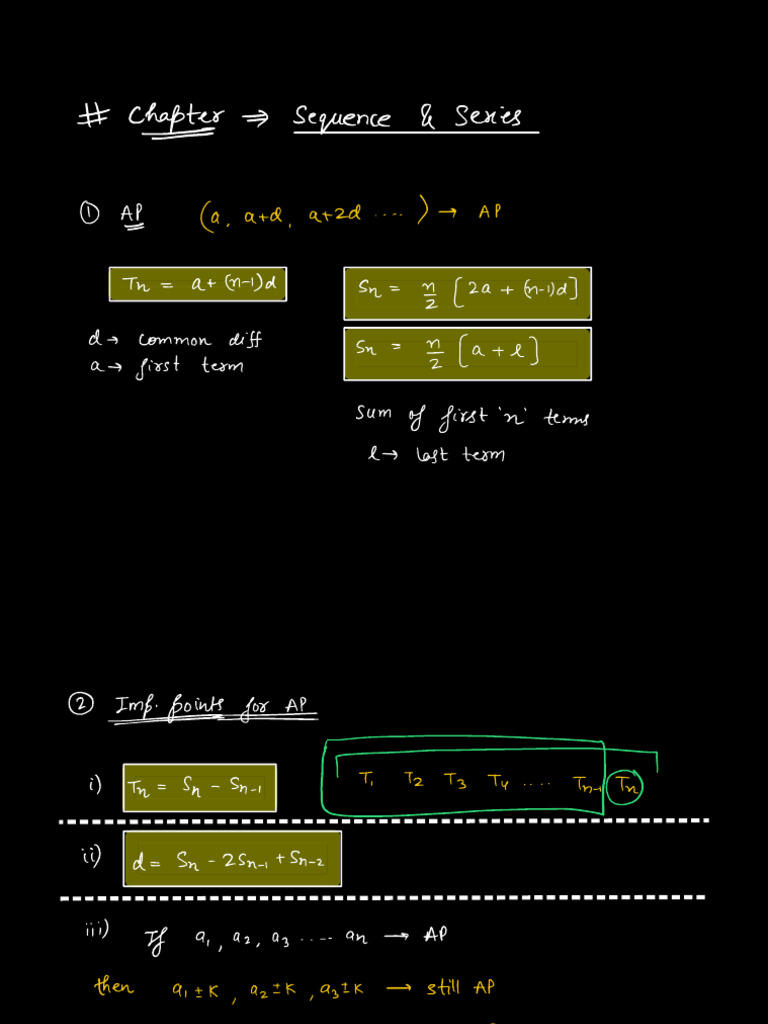 # Chapter ⇒ Sequence & Series
① AP (a, a+d, a+2d ....) → AP
Tn = a+(n-1)d
Sn = n/2 [2a + (n-1)d]
d → common diff
a → first term
Sn = n/2 [a + l]
Sum of first 'n' terms
l → last term
② Imp. points for AP
i) Tn = Sn - Sn-1
T1 T2 T3 T4 .... Tn-1 Tn
ii) d = Sn - 2Sn-1 + Sn-2
iii) If a1, a2, a3 .... an → AP
then a1 ± K, a2 ± K, a3 ± K → still AP